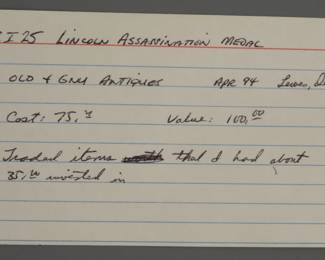 I 25 LINCOLN ASSASSINATION MEDAL
OLD & GNU ANTIQUES APR 94 Lewes,
Cost: 75.00 Value: 100.00
Traded items worth that I had about
35.00 invested in